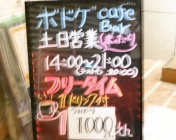 ボドゲ cafe
Bar
土日営業
14:00~21:00
フリータイム
1ドリンク付
1000